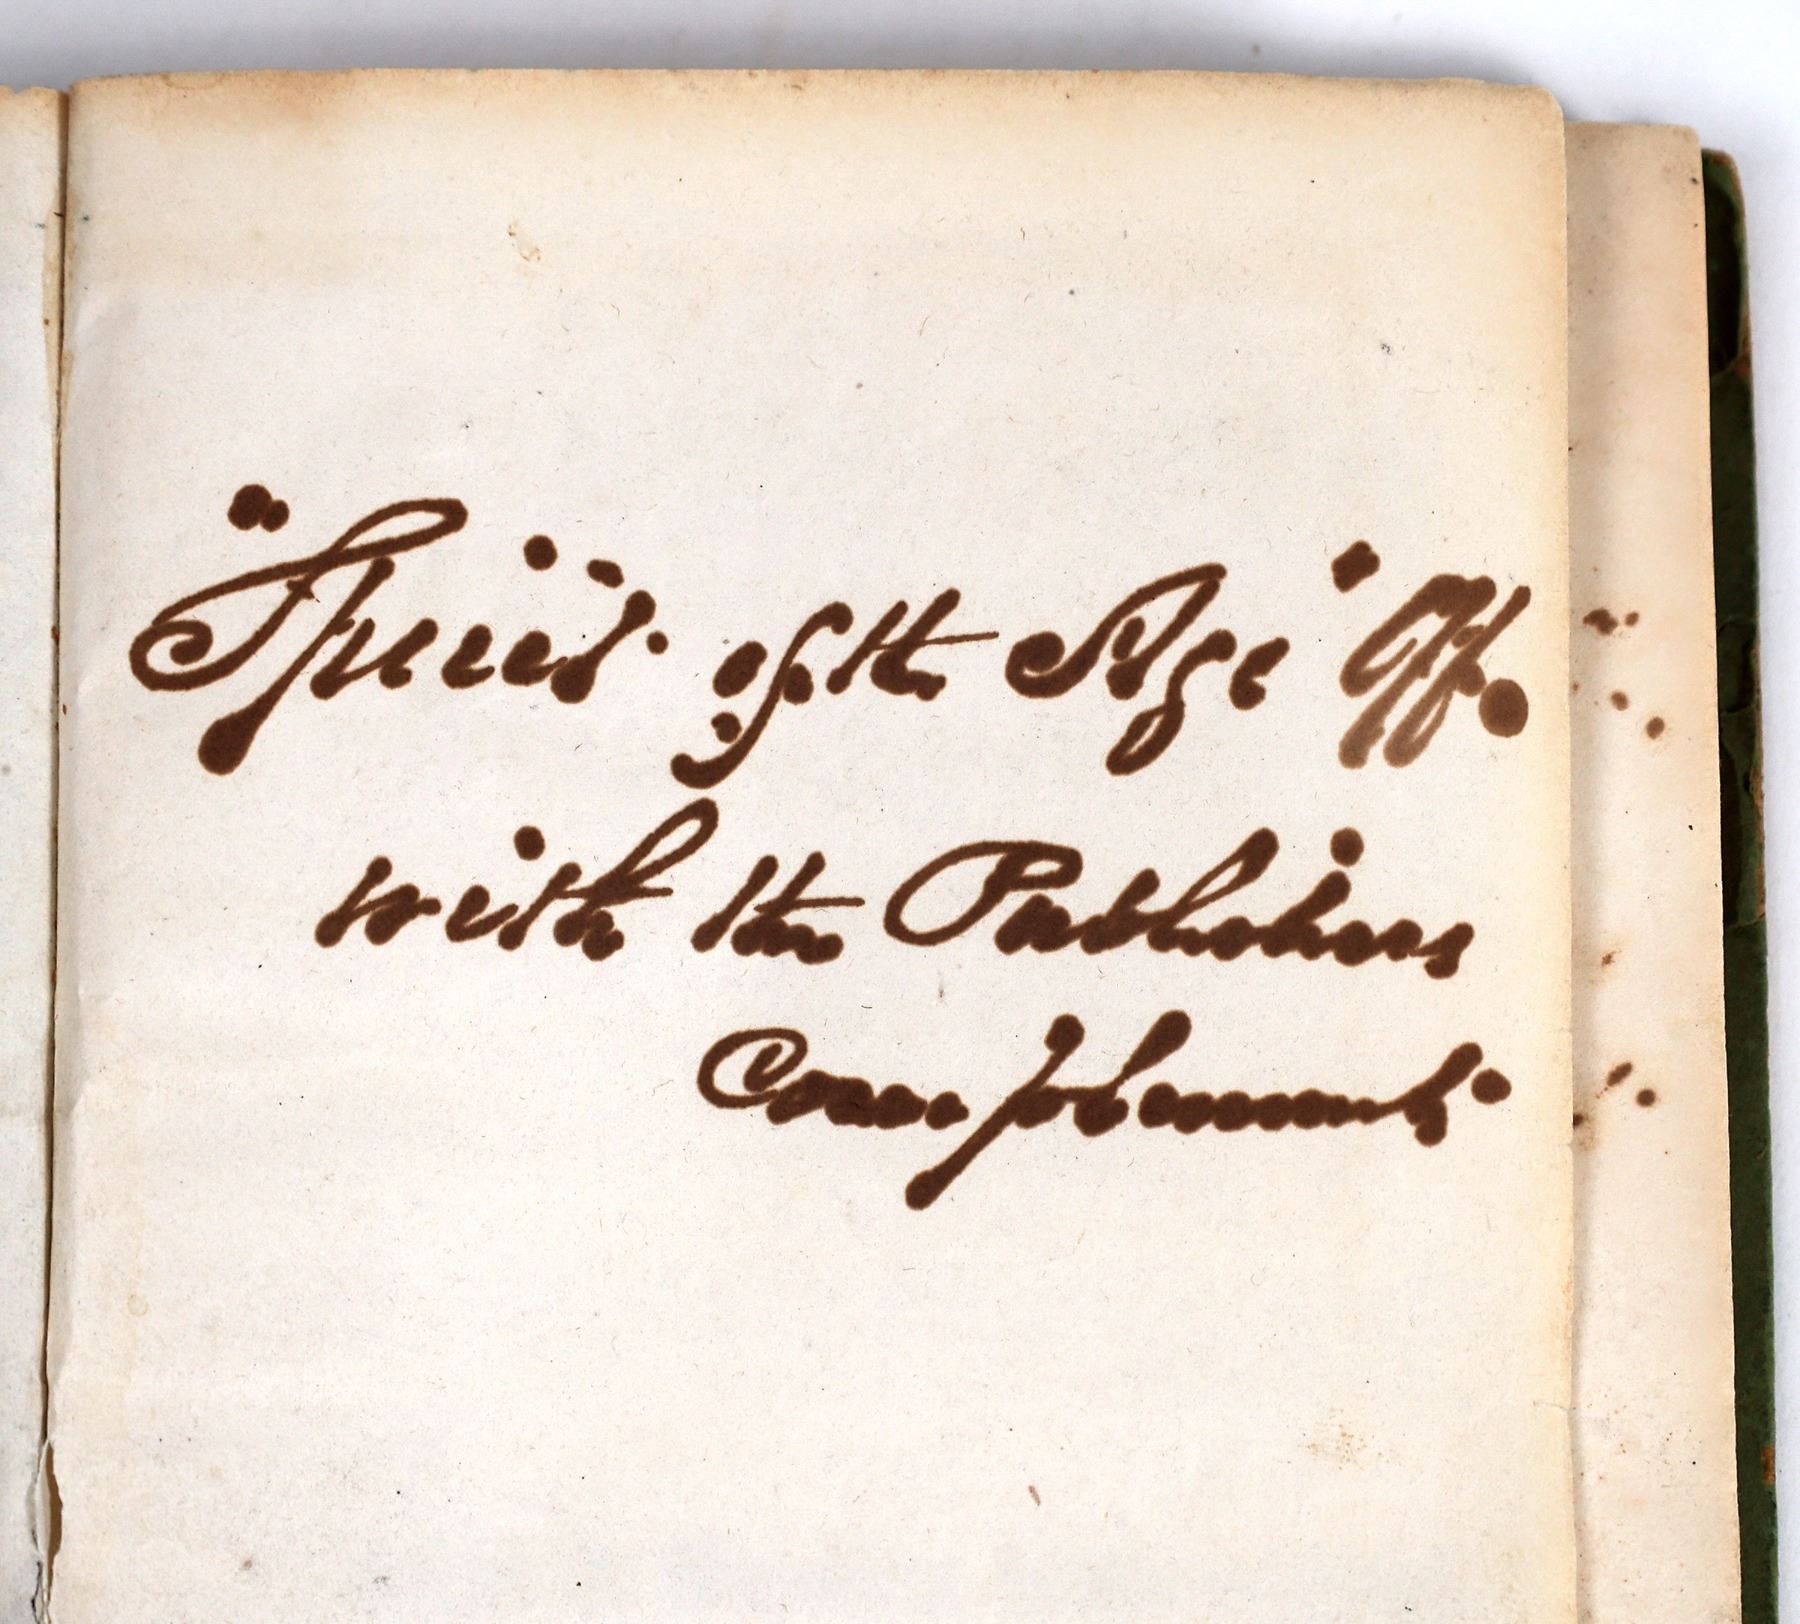 "Spirit of the Age" Off.
with the Publishers
Compliments